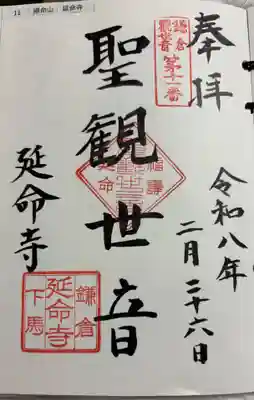 11 帰命山 延命寺
奉拝
鎌倉
観世音
第十一番
聖観世音
福寿
延命
令和八年
二月二十六日
延命寺
鎌倉
延命寺
下馬